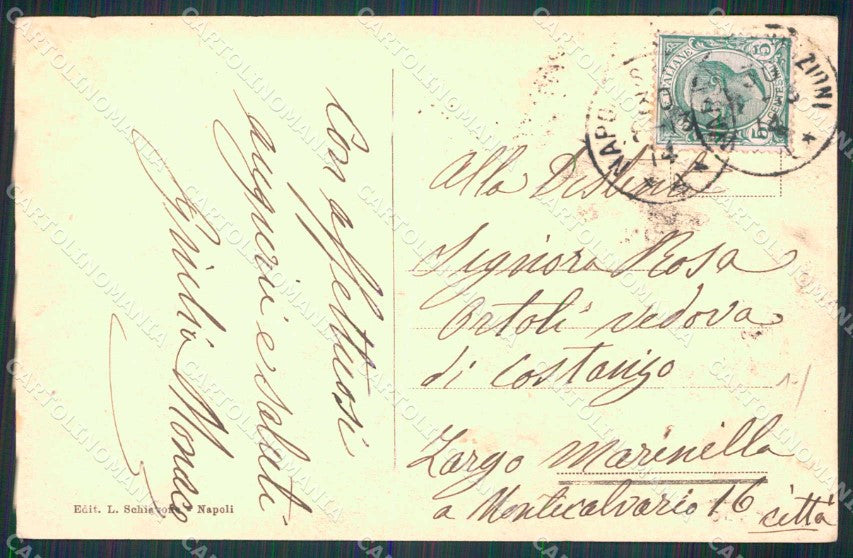 Con affettuosi
auguri e saluti
Giulia Monaco
Alla Distinta
Signora Rosa
Ortoli vedova
di Costanzo
Largo Marinella
a Montecalvario 16
città
Edit. L. Schiavone Napoli
NAPO
ZIONI
14
ITALIANE
CARTOLINOMANIA